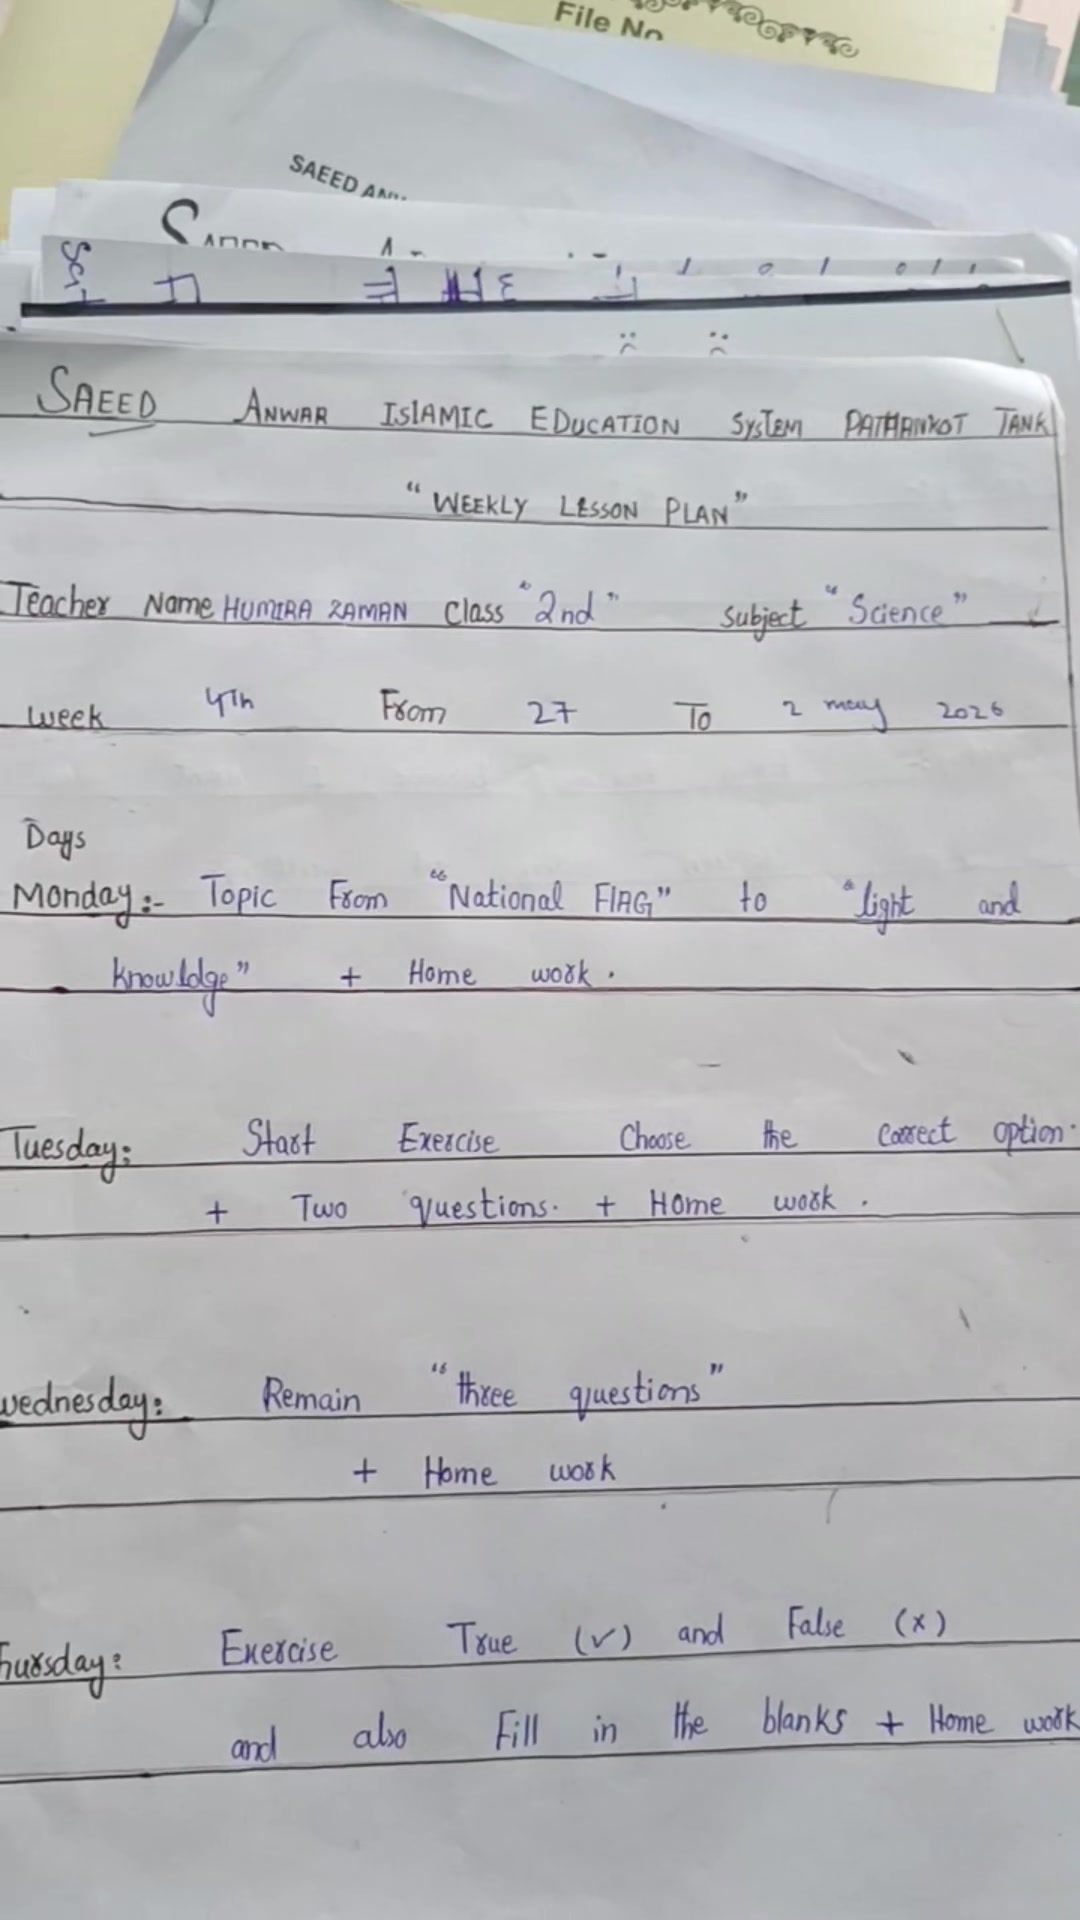 File No
SAEED
SAEED ANWAR ISLAMIC EDUCATION SYSTEM PATHANKOT TANK
"WEEKLY LESSON PLAN"
Teacher Name HUMIRA ZAMAN Class "2nd" Subject "Science"
week 4th From 27 To 2 may 2026
Days
Monday:- Topic From "National FlAG" to "light and
knowldge" + Home work.
Tuesday: Start Exercise Choose the correct option.
+ Two questions. + Home work.
wednesday: Remain "three questions"
+ Home work
hursday: Exercise True (✓) and False (x)
and also Fill in the blanks + Home work